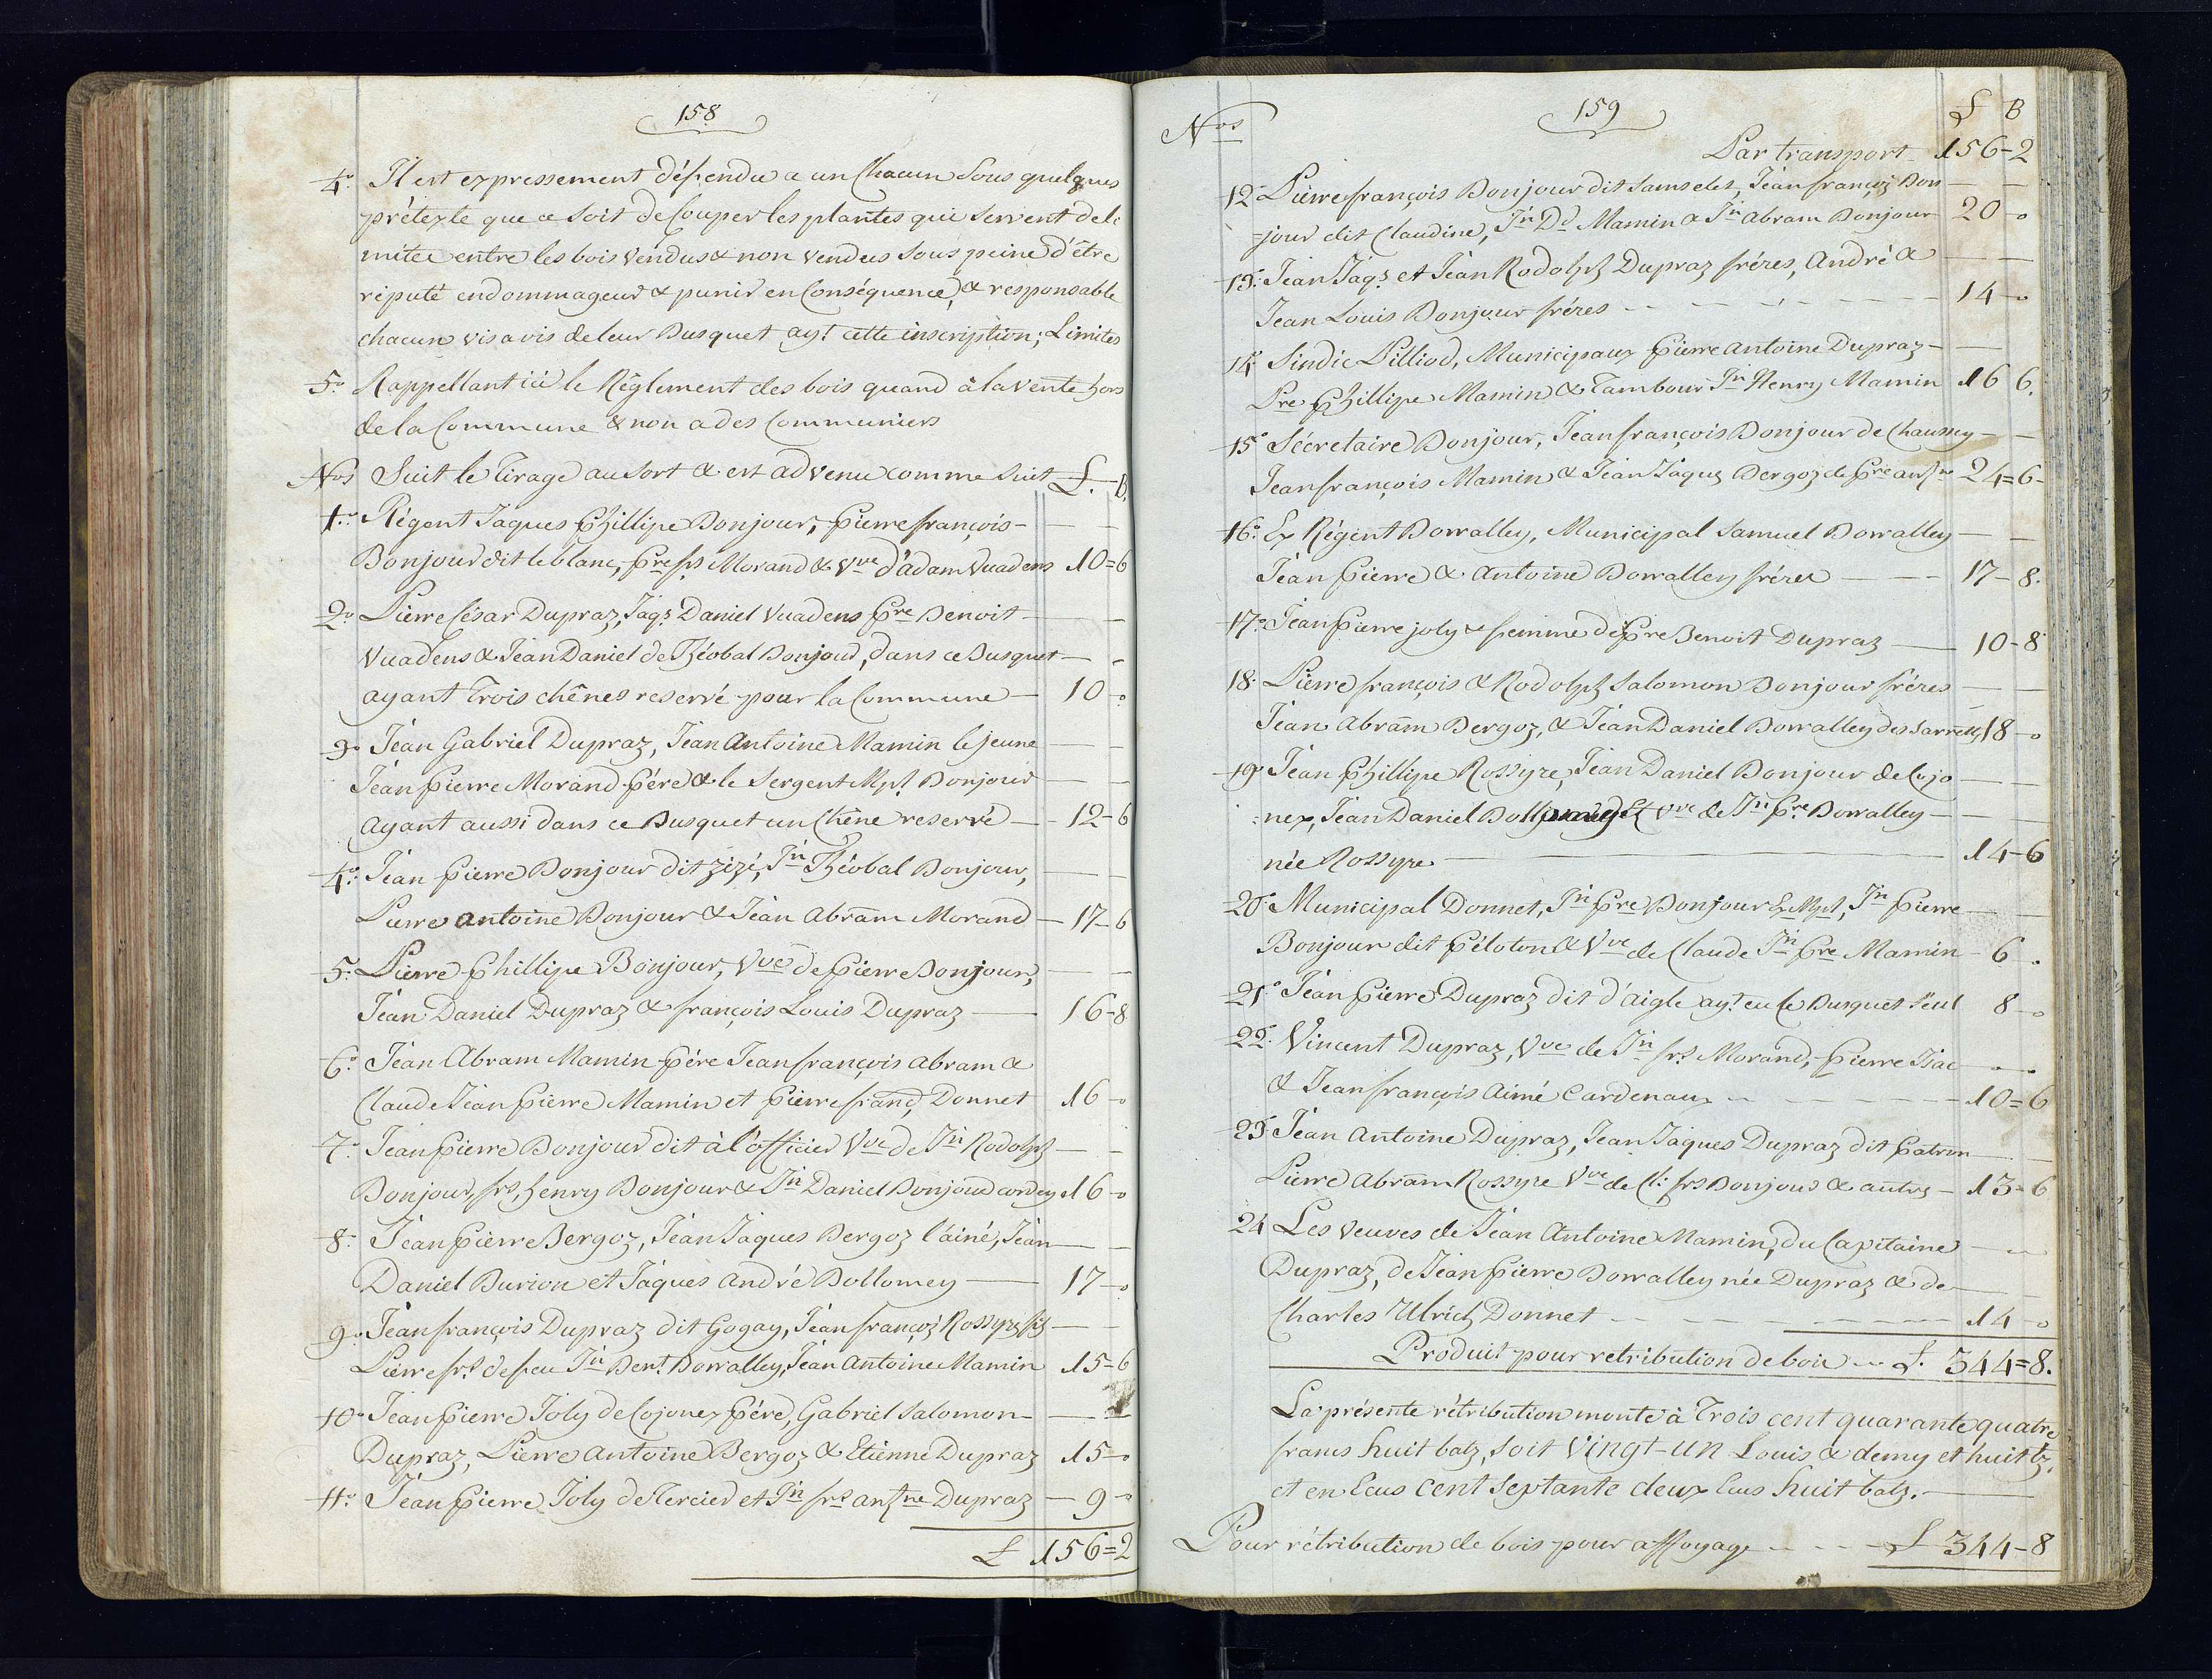 158
4.° Il est expressement déffendu a un Chacun Sous quelques
prétexte que ce Soit de Couper les plantes qui Servent de li
mites entre les bois Vendus & non Vendus Sous peine d'être
réputé endommageur & punir en Conséquence, & responsable
chacun vis a vis de leur Busquet ayt cette inscription; Limites
5.° Rappellant ici le Règlement des bois quand à la Vente hors
de la Commune & non a des Communiers
Nos Suit le Tirage au Sort & est advenu comme Suit £. B.
1.° Régent Jaques Phillipe Bonjour, pierre françois
Bonjour dit le blanc, Pre frs Morand & Vve d'adam Vuadens 10=6
2.° Pierre César Dupraz, Jaqs Daniel Vuadens Pre Benoit
Vuadens & Jean Daniel de Théobal Bonjour, dans ce Busquet
ayant Trois chênes reservé pour la Commune 10 - o
3.° Jean Gabriel Dupraz, Jean Antoine Mamin le jeune
Jean Pierre Morand Pére & le Sergent Mpl Bonjour
ayant aussi dans ce Busquet un Chêne reservé 12-6
4.° Jean Pierre Bonjour dit zizé, Jn Théobal Bonjour,
Pierre antoine Bonjour & Jean Abram Morand 17-6
5.° Pierre Phillipe Bonjour, Vve de Pierre Bonjour,
Jean Daniel Dupraz & françois Louis Dupraz 16-8
6.° Jean Abram Mamin Pére Jean françois abram &
Claude Jean Pierre Mamin et Pierre franç. Donnet 16 - o
7.° Jean Pierre Bonjour dit à l'officier Vve de Jn Rodolph
Bonjour, frs henry Bonjour & Jn Daniel Bonjour cordey 16 - o
8.° Jean Pierre Bergoz, Jean Jaques Bergoz l'ainé, Jean
Daniel Burion et Jaques André Bollomey 17 - o
9.° Jean françois Dupraz dit Gogay, Jean françoiz Rossyre fils
Pierre frs de feu Jn Bent Dorralley, Jean Antoine Mamin 15-6
10.° Jean Pierre Joly de Cojonex Pére, Gabriel Salomon
Dupraz, Pierre Antoine Bergoz & Etienne Dupraz 15 - o
11.° Jean Pierre Joly de Tercier et Jn frs antne Dupraz 9 - o
£ 156=2
159
Nos £ B
Par transport 156-2
12.° Pierre françois Bonjour dit Samselet, Jean françoiz Bon
=jour dit Claudine, Jn Dd Mamin & Jn Abram Bonjour 20 - o
13.° Jean Jaqs et Jean Rodolph Dupraz fréres, André &
Jean Louis Bonjour fréres 14 - o
14.° Sindic Pilliod, Municipaux Pierre Antoine Dupraz
Pre Phillipe Mamin & Tambour Jn Henry Mamin 16 6.
15.° Sécretaire Bonjour, Jean françois Bonjour de Chaussey
Jean françois Mamin & Jean Jaques Bergoz de Pre antne 24=6
16.° Ex Régent Dorralley, Municipal Samuel Dorralley
Jean Pierre & Antoine Dorralley fréres 17-8.
17.° Jean Pierre joly & femme de Pre Benoit Dupraz 10-8
18.° Pierre françois & Rodolph Salomon Bonjour fréres
Jean Abram Bergoz, & Jean Daniel Dorralley des Sarrets 18 - o
19.° Jean Phillipe Rossyre, Jean Daniel Bonjour de Cojo
=nex, Jean Daniel Et Vve de Jn Pre Dorralley
née Rossyre 14-6
20.° Municipal Donnet, Jn Pre Bonjour Ex Mpl, Jn Pierre
Bonjour dit Péloton & Vve de Claude Jn Pre Mamin 6 .
21.° Jean Pierre Dupraz dit d'aigle ayt eu le Busquet Seul 8 - o
22.° Vincent Dupraz, Vve de Jn frs Morand, Pierre Isac
& Jean françois Aimé Cardenaux 10=6
23.° Jean Antoine Dupraz, Jean Jaques Dupraz dit Patron
Pierre Abram Rossyre Vve de Cl: frs Bonjour & autrs 13=6
24 Les Veuves de Jean Antoine Mamin, du Capitaine
Dupraz, de Jean Pierre Dorralley née Dupraz & de
Charles Ulrich Donnet 14 - o
Produit pour retribution de bois £. 344=8.
La présente rétribution monte à Trois cent quarante quatre
francs huit batz, soit Vingt-un Louis & demy et huit bz,
et en Ecus Cent Septante deux Ecus huit batz.
Pour rétribution de bois pour affoyage £ 344-8